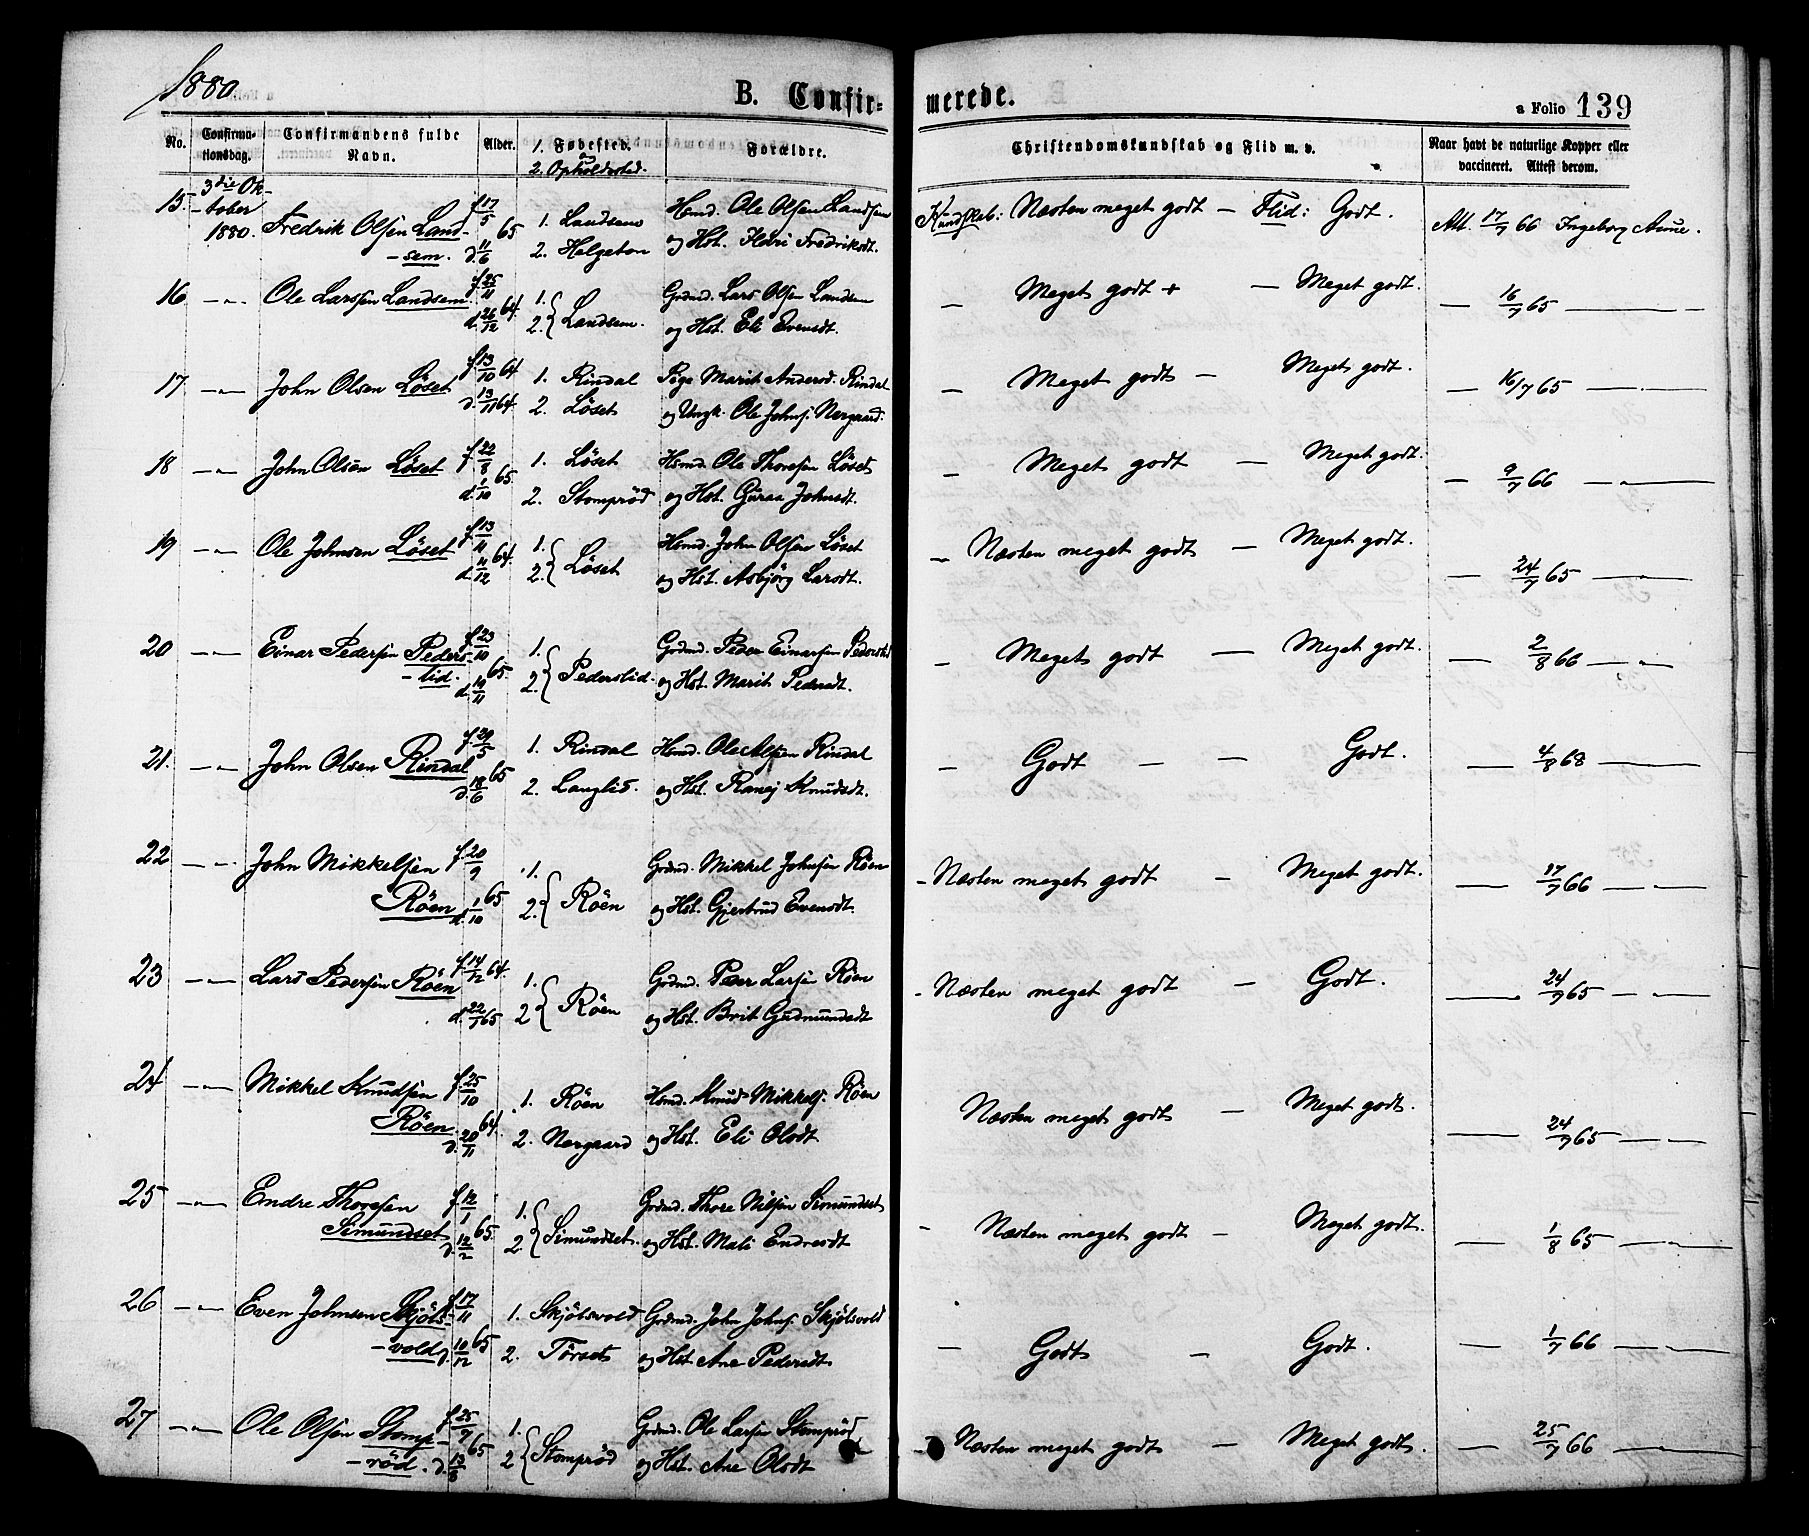 1880
B. Confir-
merede.
a Folio 139
No.
Confirma-
tionsdag.
Confirmandens fulde
Navn.
Alder.
1. Fødested.
2. Opholdssted.
Forældre.
Christendomskundskab og Flid m. v.
Naar havt de naturlige Kopper eller
vaccineret. Attest derom.
15. 3die Ok-
- tober
1880. Fredrik Olsen Land- f. 17/5 65 1. Landsem Hsmd. Ole Olsen Landsem Kundskab: Næsten meget godt — Flid: Godt. Att. 17/7 66 Ingeborg Aune.
- sem. d. 11/6 2. Helgeton og Hst. Fredriksdt.
16 —"— Ole Larssen Landsem f. 25/11 64. 1. Grdmd. Lars Olsen Landsem — Meget godt + — Meget godt. — 16/7 65 —
d. 26/12 2. { Landsem. og Hst. Eli Evensdt.
17 —"— John Olsen Løset f. 13/10 64 1. Rindal Pige Marit Andersd. Rindal — Meget godt — Meget godt. — 16/7 65 —
d. 13/11 64. 2. Løset og Ungk. Ole Johns. Nergaard.
18 —"— John Olsen Løset f. 22/8 65. 1. Løset Hsmd. Ole Thoresen Løset — Meget godt — Meget godt. — 9/7 66 —"—
d. 1/10 2. Stomprød og Hst. Guraa Johnsdt.
19 —"— Ole Johnsen Løset f. 13/11 64. 1. Hsmd. John Olsen Løset — Næsten meget godt — Meget godt. — 24/7 65 —"—
d. 11/12 2. { Løset og Hst. Asbjørg Larsdt.
20 —"— Einar Pedersen Peders- f. 23/10 65 1. Grdmd. Peder Einarsen Pederslid — Meget godt — Meget godt. — 2/8 66 —"—
- lid. d. 19/11 2. { Pederslid. og Hst. Marit Pedersdt.
21. —"— John Olsen Rindal f. 29/5 65 1. Rindal Hsmd. Ole Alsen Rindal — Godt — — Godt. — 4/8 68 —
d. 18/6 2. Langlid. og Hst. Ranej Knudsdt.
22 —"— John Mikkelsen f. 20/9 1. Grdmd. Mikkel Johnsen Røen - Næsten meget godt — Meget godt. — 17/7 66 —
Røen d. 1/10 65 2. { Røen og Hst. Gjertrud Evensdt.
23 —"— Lars Pedersen Røen f. 14/12 64. 1. Grdmd. Peder Larsen Røen - Næsten meget godt — Godt. — 24/7 65 —"—
d. 22/1 65 2 { Røen og Hst. Brit Gudmundsdt
24 —"— Mikkel Knudsen f. 25/10 1. Røen Hsmd. Knud Mikkels. Røen Næsten meget godt — Meget godt. — 24/7 65 —"—
Røen. d. 20/11 64. 2. Nergaard og Hst. Eli Olsdt
25 —"— Endre Thoresen f. 14/1 65 1. Grdmd. Thore Nilsen Simundset - Næsten meget godt — Meget godt. — 1/8 65 —"—
Simundset d. 12/2 2 { Simundset. og Hst. Mali Endresdt
26 —"— Even Johnsen Skjøls- f. 17/11 65 1. Skjølsvold Grdmd. John Johns. Skjølsvold — Godt — Godt. — 1/7 66 —"—
- vold d. 10/12 2. Tørset og Hst. Ane Pedersdt
27 —"— Ole Olsen Stomp- f. 25/7 65 1. Grdmd. Ole Larsen Stomprød — Næsten meget godt — Meget godt. — 25/7 66 —"—
- rød. d. 13/8 2 { Stomprød og Hst. Ane Olsdt